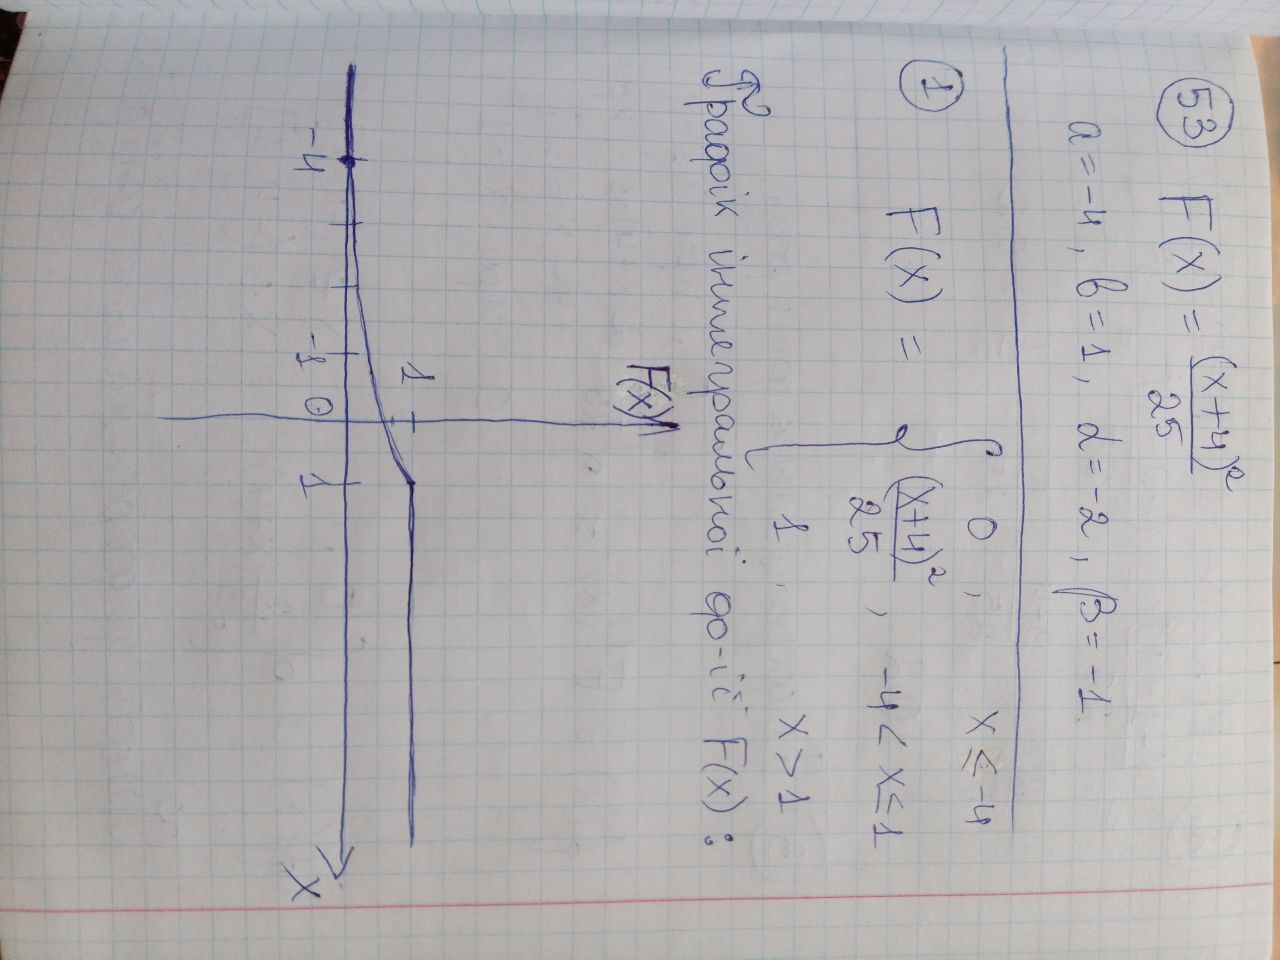 53 F(x) = (x+4)² / 25
a = -4, в = 1, α = -2, β = -1.
1 F(x) = { 0, x ≤ -4
(x+4)² / 25, -4 < x ≤ 1
1, x > 1
Графік інтегральної ф-ії F(x):
F(x)
1
-4 -1 0 1
x